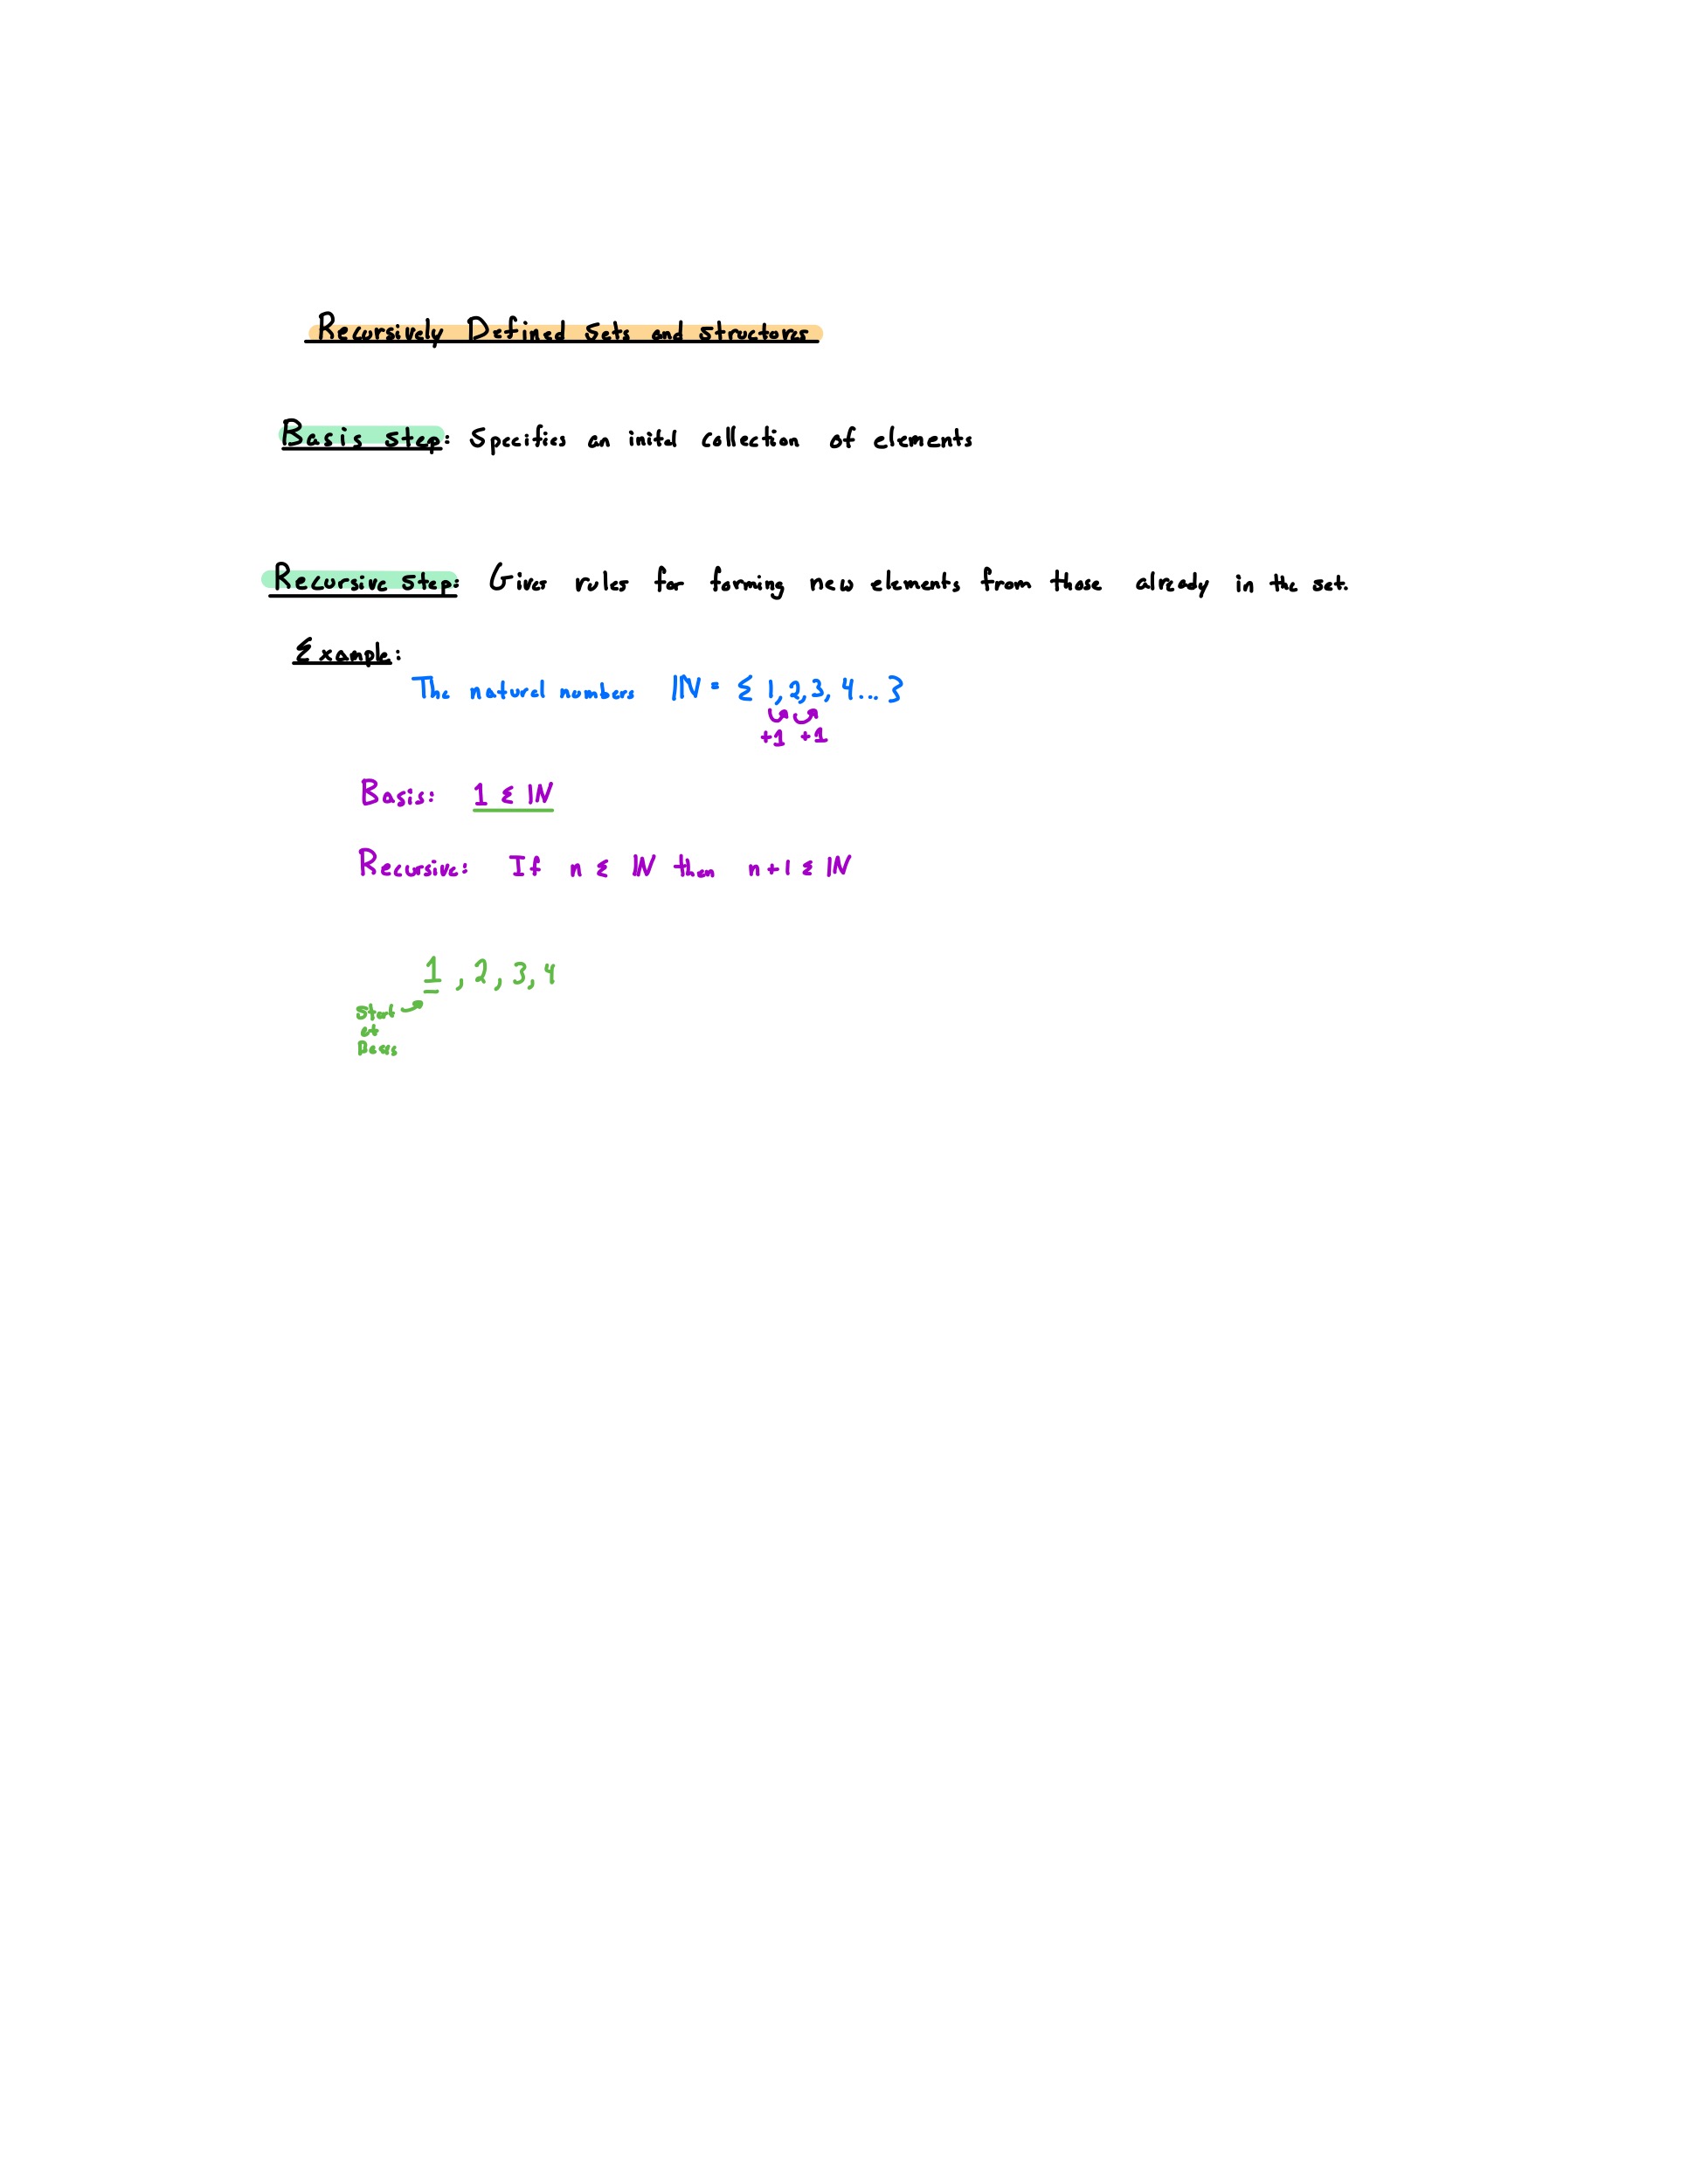 Recursively Defined Sets and structores
Basis step: Specifies an inital collection of elements
Recursive step: Gives rules for forming new elements from those already in the set.
Example:
The natural numbers ℕ = { 1, 2, 3, 4... }
+1 +1
Basis: 1 ∈ ℕ
Recursive: If n ∈ ℕ then n+1 ∈ ℕ
1, 2, 3, 4
Start
at